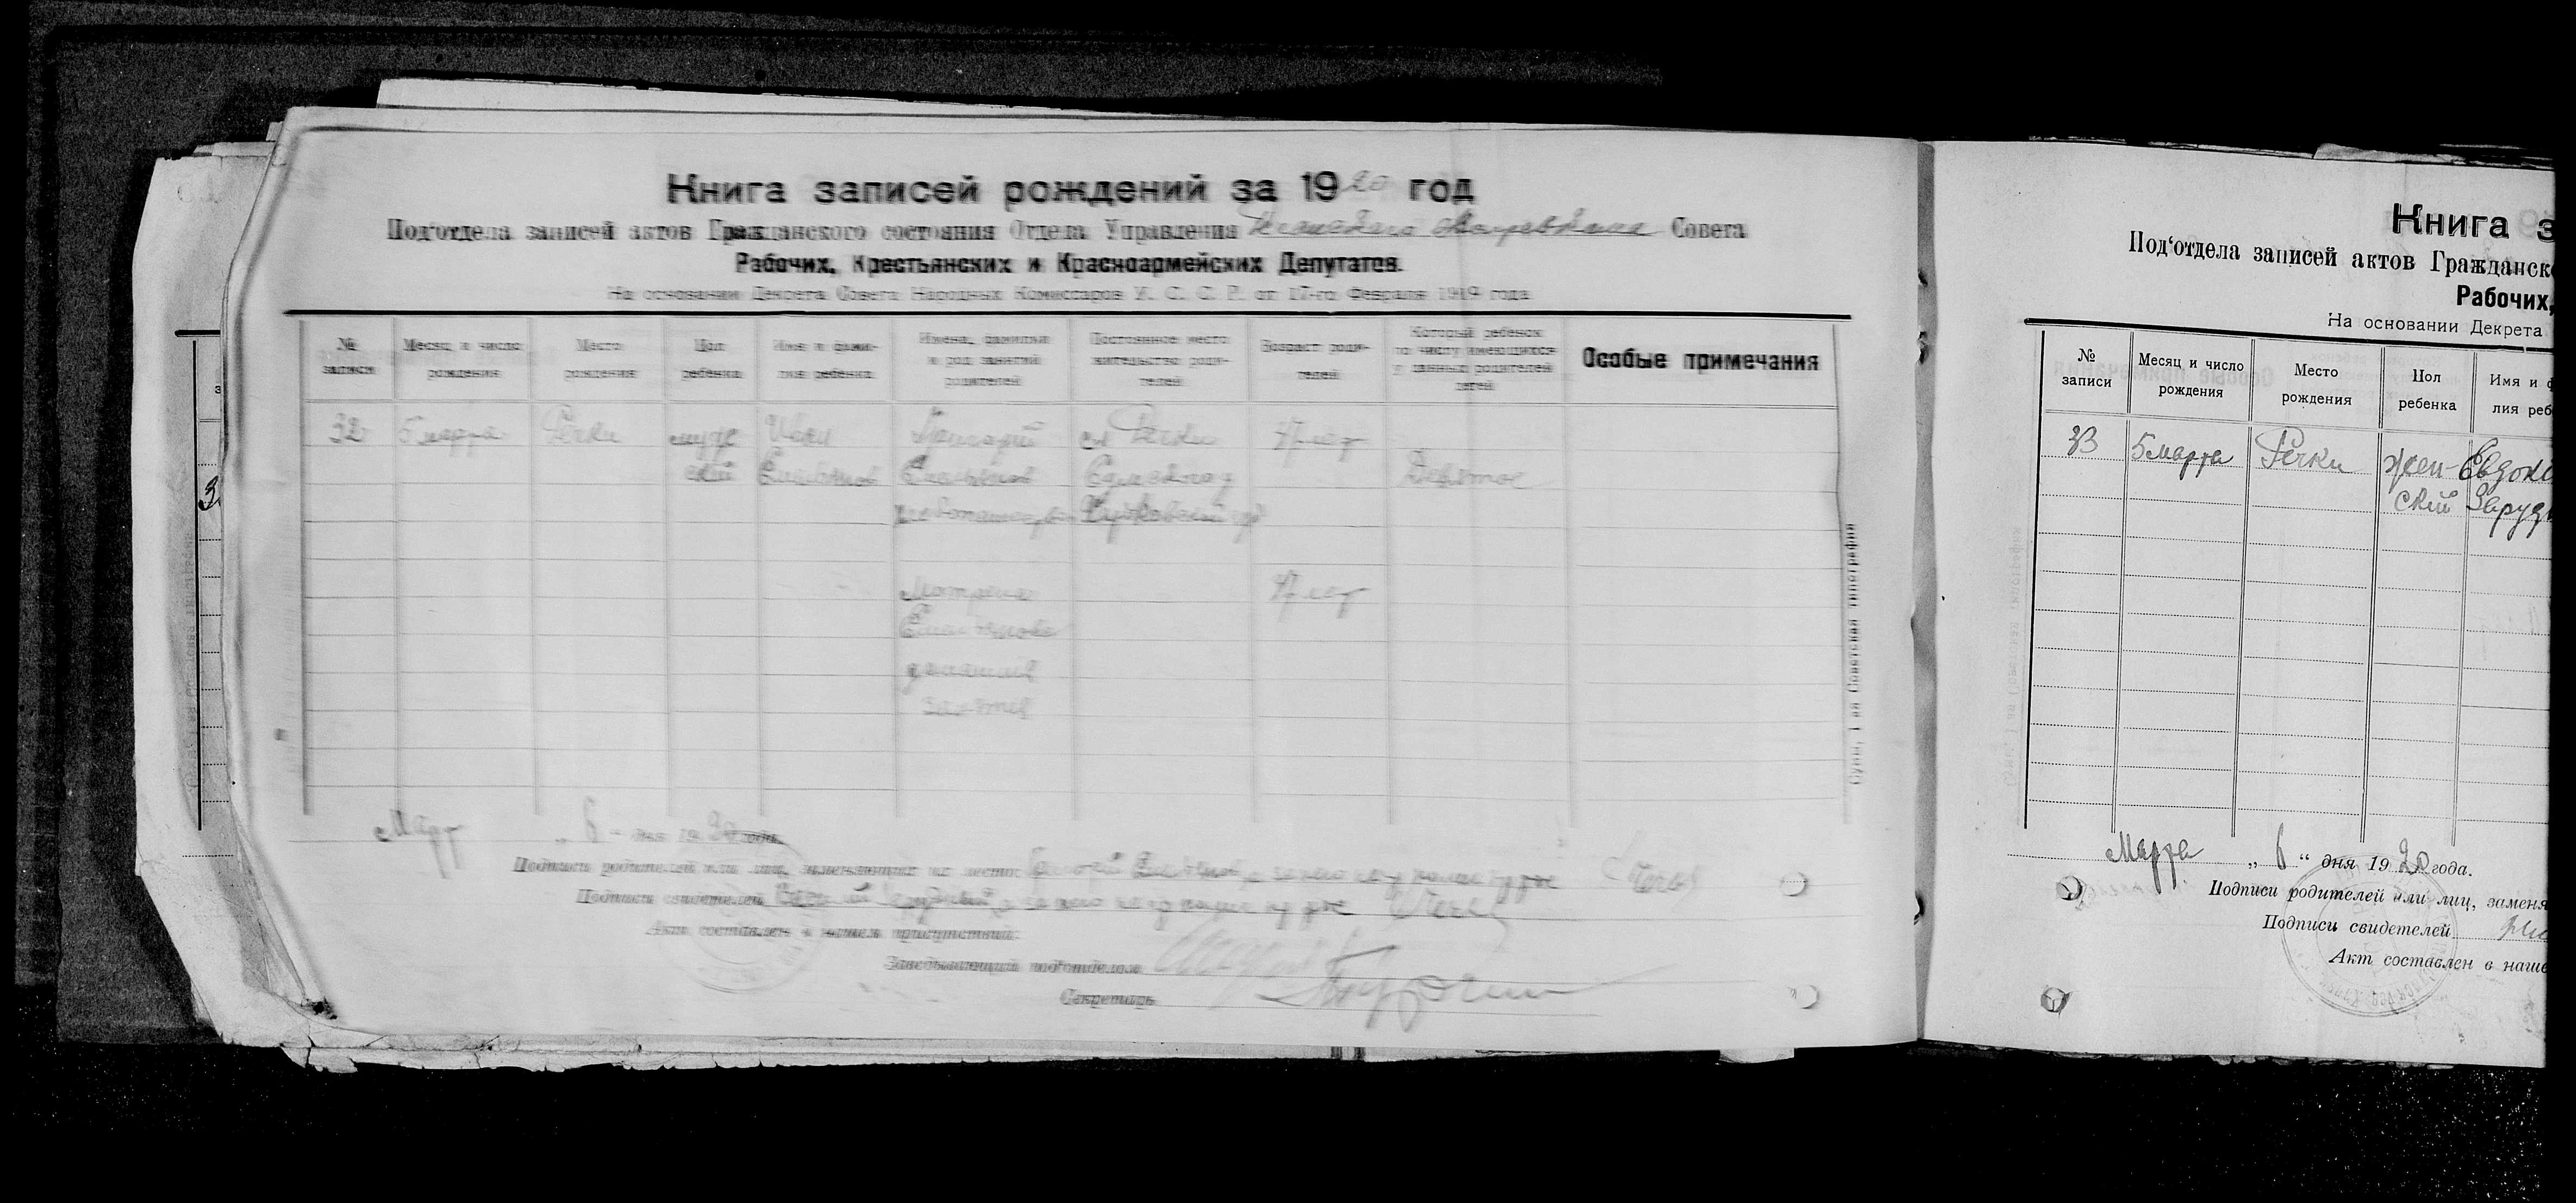 Книга записей рождений за 1920 год
Под'отдела записей актов Гражданского состояния Отдела Управления Совета
Рабочих, Крестьянских и Красноармейских Депутатов.
На основании Декрета Совета Народных Комиссаров У. С. С. Р. от 17-го Февраля 1919 года
№ записи
Месяц и число рождения
Место рождения
Пол ребенка
Имя и фамилия ребенка
Имена, фамилии и род занятий родителей
Постоянное место жительство родителей
Возраст родителей
Который ребенок по числу имеющихся у данных родителей детей
Особые примечания
32 5 марта Речки муж Иван Григорий сл Речки 47 лет
ский Емельянов Емельянов Сумского у Девятое
хлебопашество
Матрена 47 лет
Емельянова
домашние
занятие
Сумы, 1-ая Советская типография
Март „ 6 " дня 1920 года.
Подписи родителей или лиц, заменяющих их место: Григорий Емельянов, а за него
Подписи свидетелей
Акт составлен в нашем присутствии:
Заведывающий под'отделом
Секретарь
Книга з
Под'отдела записей актов Гражданск
Рабочих,
На основании Декрета
№ записи
Месяц и число рождения
Место рождения
Пол ребенка
Имя и ф
лия реб
33 5 марта Речки жен- Евдоки
ский Заруд
Марта „ 6 " дня 1920 года.
Подписи родителей или лиц, заменя
Подписи свидетелей
Акт составлен в наше